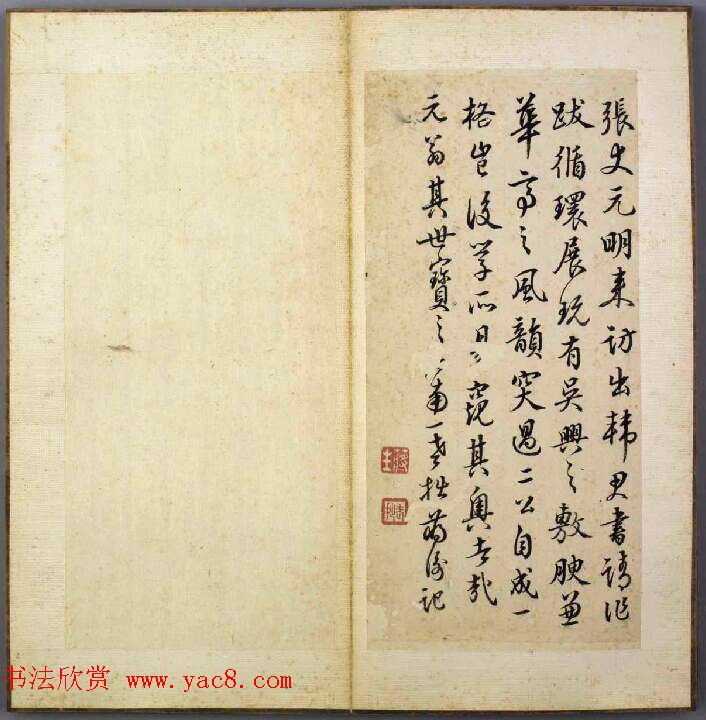 張丈元明来訪出韩君書請作
跋循環展玩有吳興之敷腴兼
華亭之風韻突過二公自成一
格豈後學所窺其奥者哉
元翁其世寶之一老拙記
书法欣赏 www.yac8.com